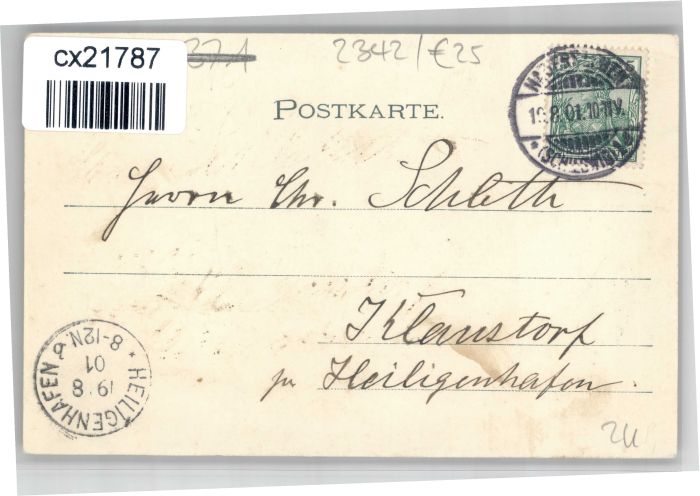 cx21787
37A
2342/€25
POSTKARTE.
19.8.01.10-11V.
* (SCHLESWIG) *
Herrn Chr. Schleth
Klaustorf
pr Heiligenhafen.
* HEILIGENHAFEN
19 8
01
8-12N